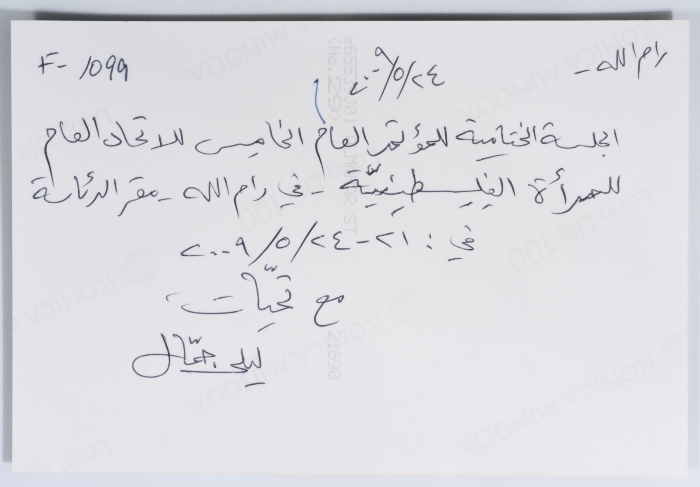 رام الله - ٢٤/٥/٢٠٠٩ F- 1099
الجلسة الختامية للمؤتمر العام الخامس للاتحاد العام
للمرأة الفلسطينية - في رام الله - مقر الرئاسة
في: ٢١-٢٤/٥/٢٠٠٩
مع تحيّات
ليلى جمّال
KONICA MINOLTA
Long Life 100